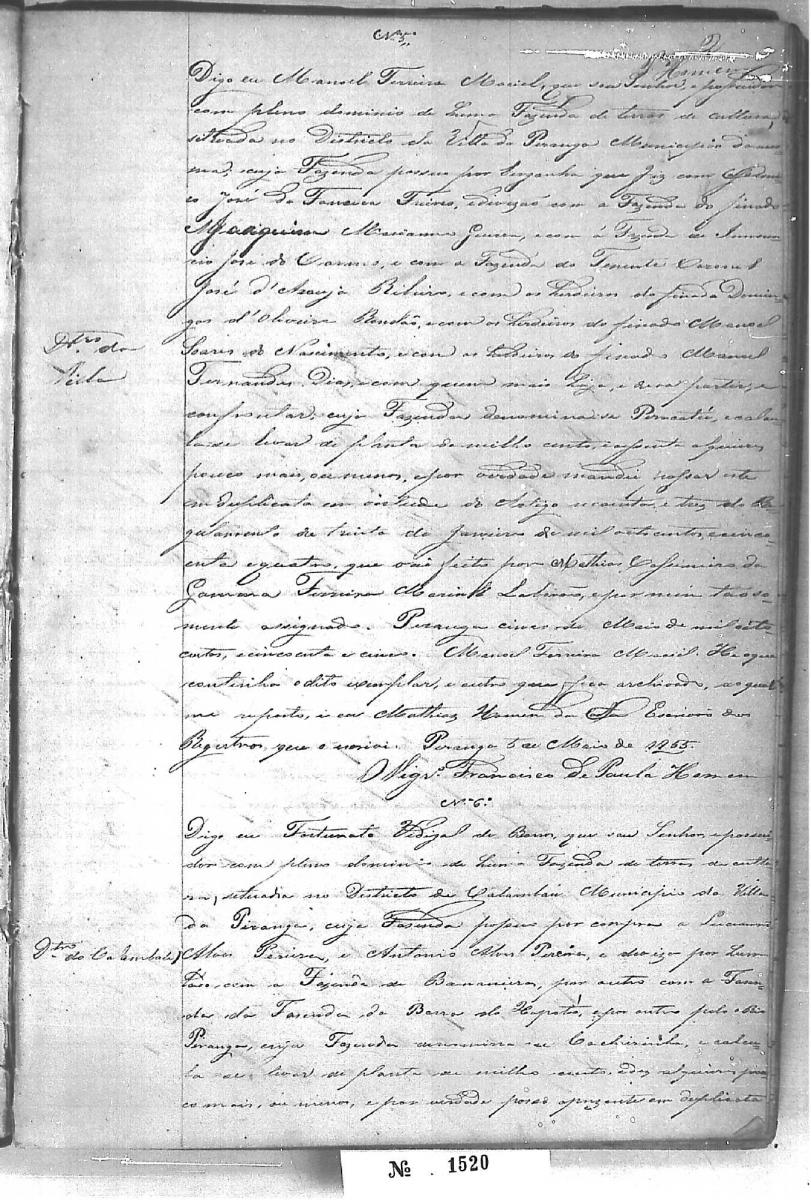 N.5.
2
Homem
Digo eu Manoel Ferreira Maciel, que sou Senhor, e possuidor
com pleno dominio de huma Fazenda de terras de cultura,
setuada no Districto da Villa da Piranga Municipio da mes
ma, cuja Fazenda possuo por barganha que fiz com
José da Fonseca Freires, e devizão com a Fazenda do finado
Joaquim Marianno Guerra, e com a Fazenda de Innocen
cio José do Carmo, e com a Fazenda do Tenente Coronel
José d'Araujo Ribeiro, e com os herdeiros do finado Domin
gos d'Oliveira Rondão, e com os herdeiros do finado Manoel
Soares do Nascimento, e com os herdeiros do finado Manoel
Dtro. da
Villa
Fernandes Dias, e com quem mais haja, e deva partir, e
confrontar, cuja Fazenda denomina se e calcu
la se levar de planta de milho cento, e alqueires,
pouco mais, ou menos, e por verdade mandei passar este
em duplicata em virtude do Artigo noventa, e tres do Re
gulamento de trinta de Janeiro de mil oitocentos, e cinco
enta e quatro, que vai feito por Mathias Casimiro da
Gamara Ferreira Marink Latinão, e por mim tão so
mente assignado. Piranga cinco de Maio de mil oito
centos, e cincoenta e cinco. Manoel Ferreira Maciel. He o que
continha o dito exemplar, e outro que fica archivado, ao qual
me reporto, e eu Mathias Homem da Sa Escrivão dos
Registros, que o escrivi. Piranga 5 de Maio de 1855.
O Vigr.o Francisco de Paula Homem
N.6.
Digo eu Fortunato Vidigal de Barros, que sou Senhor, e possui
dor com pleno dominio de huma Fazenda de terras de cultu
ra, setuada no Districto de Calambáu Municipio da Villa
da Piranga, cuja Fazenda possuo por compra a Luciano
Dtro. do Calambau
Alves Pereira, e Antonio Alves Pereira, e deviza por hum
lado, com a Fazenda de Bananeiras, por outro com a Fazen
da da Fazenda da Barra do Xopotó, e por outro pelo Rio
Piranga, cuja Fazenda denomina se Cachoeirinha, e calcu
la se levar de planta de milho cento, e dez alqueires, pou
co mais, ou menos, e por verdade posso aprezente em duplicata
No. 1520